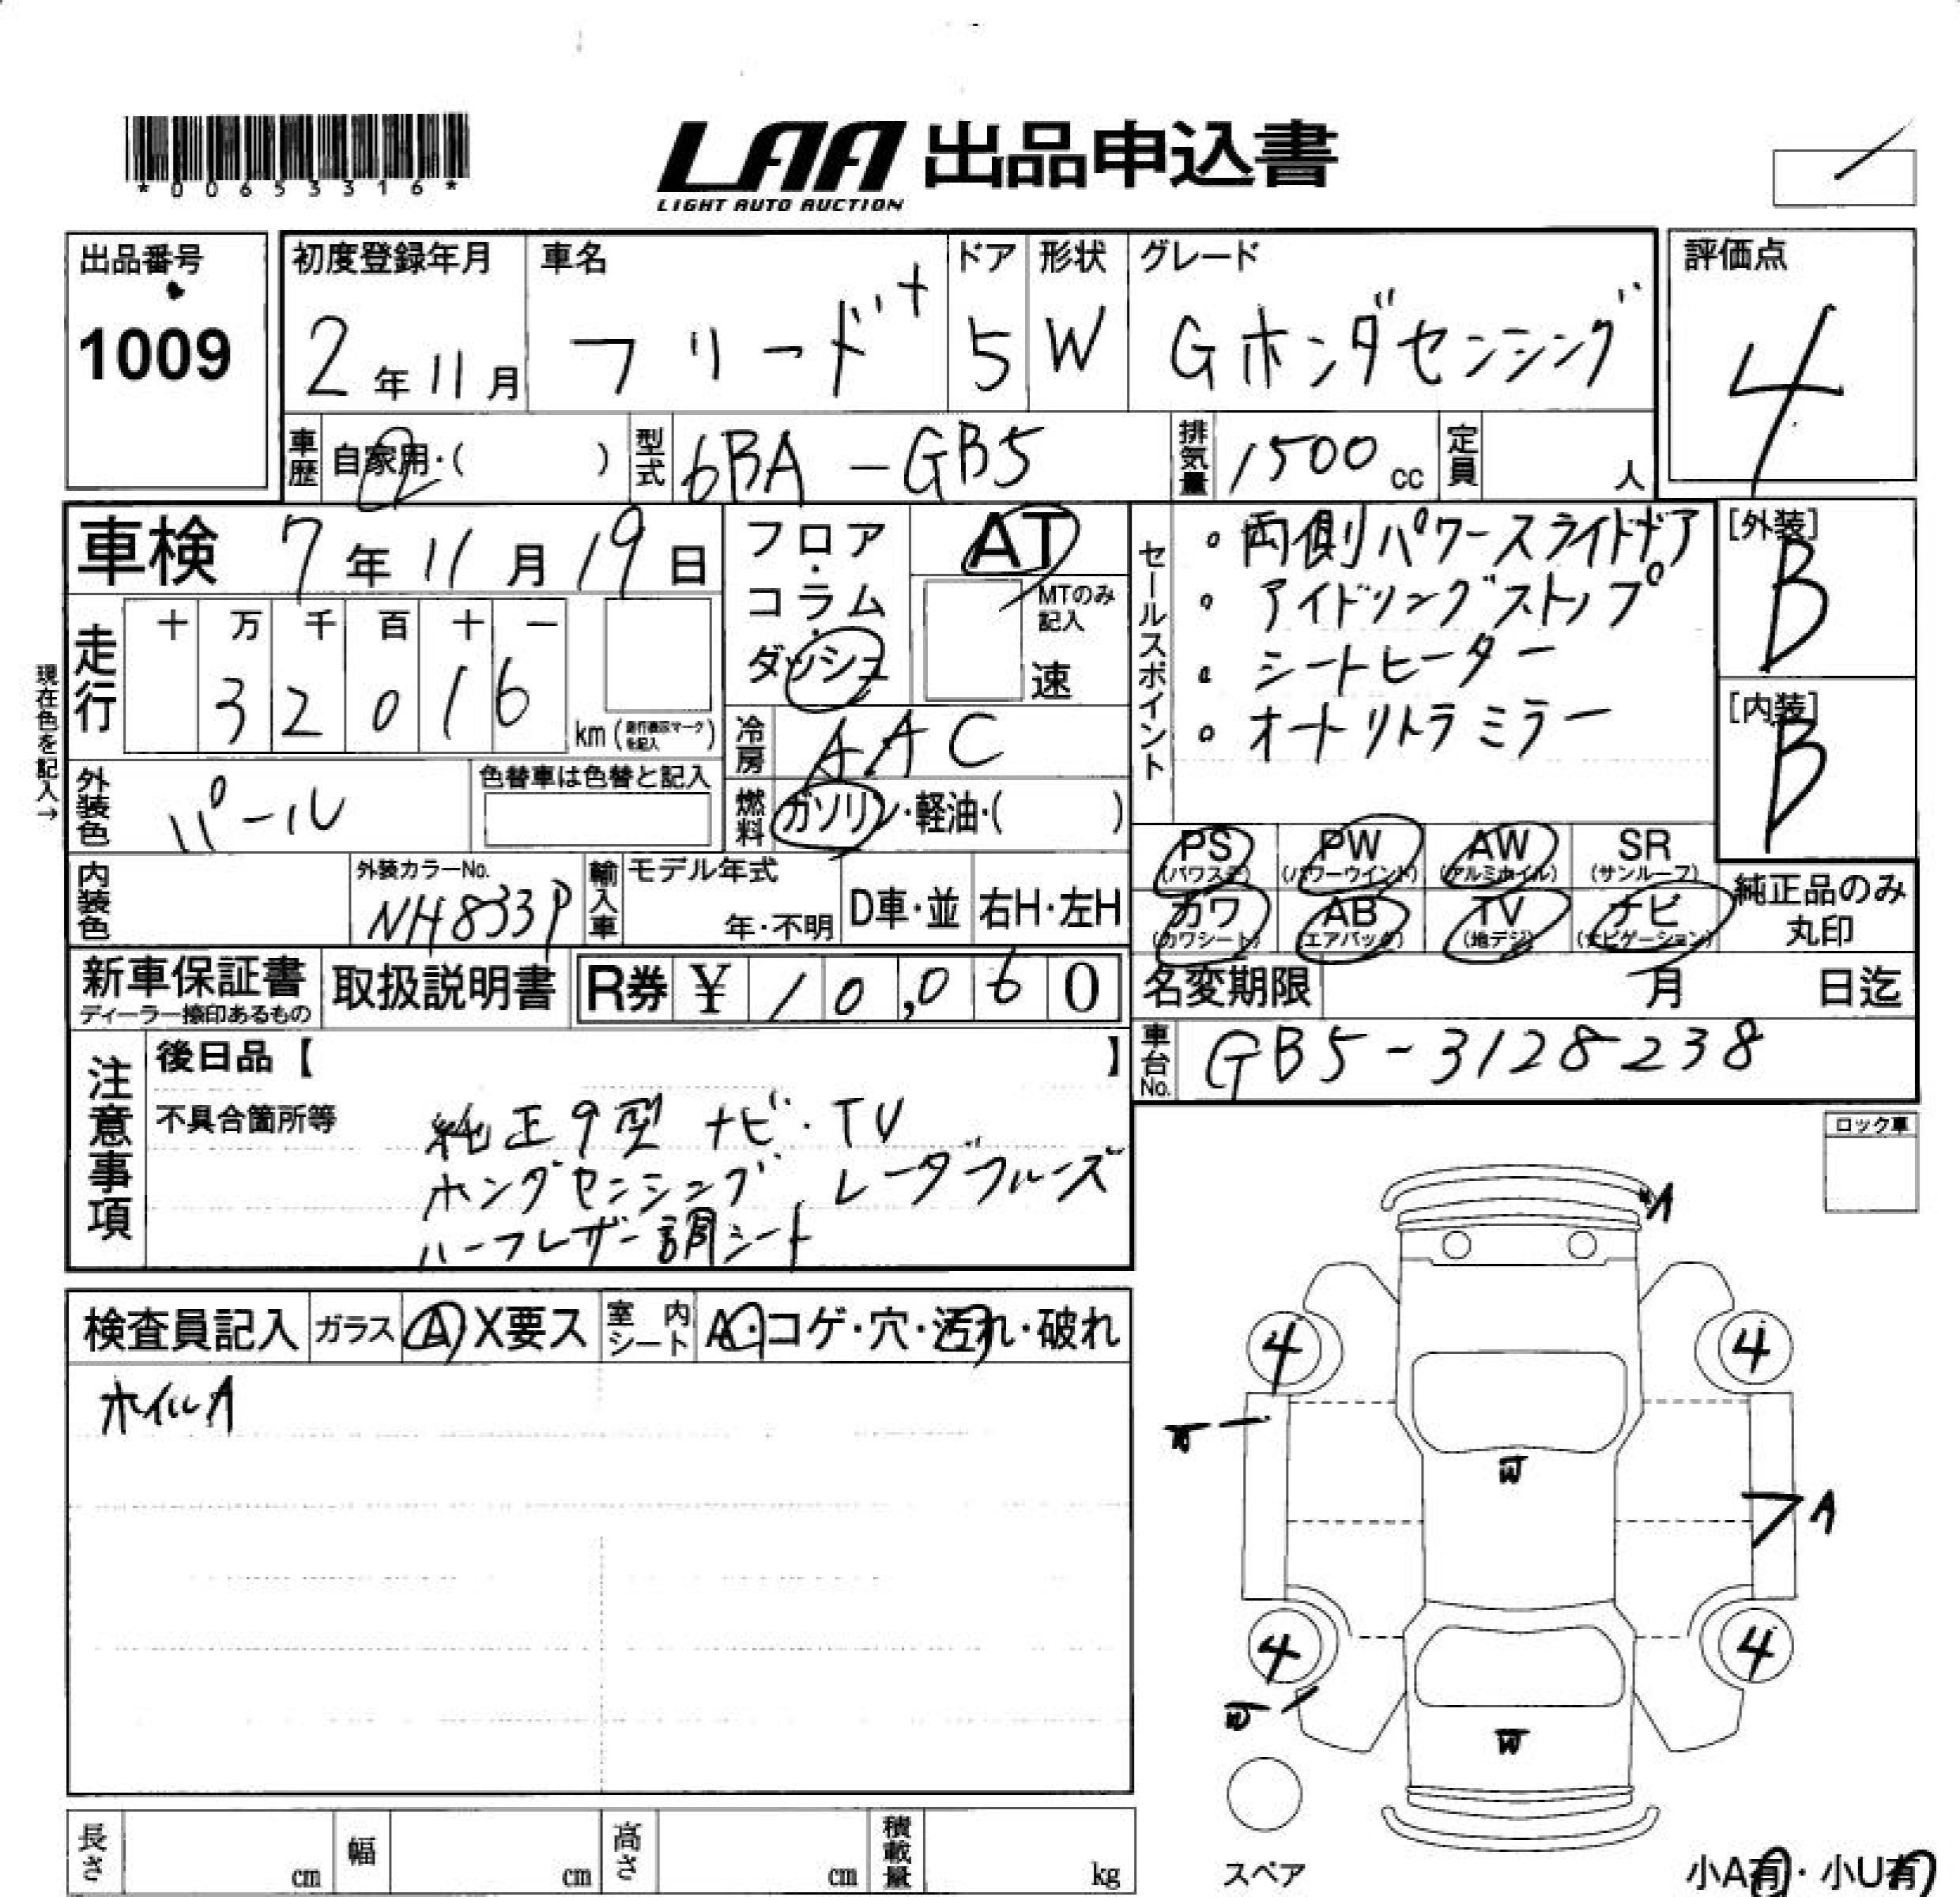 *00653316*
LAA 出品申込書
LIGHT AUTO AUCTION
出品番号
1009
初度登録年月
2年11月
車名
フリード+
ドア
5
形状
W
グレード
Gホンダセンシング
評価点
4
車歴
自家用・( )
型式
6BA-GB5
排気量
1500cc
定員
人
車検 7年11月19日
フロア・コラム・ダッシュ
AT
MTのみ記入
速
走行
十 万 千 百 十 一
3 2 0 1 6
km(走行機改マークを記入)
現在色を記入→
外装色
パール
色替車は色替と記入
冷房
AAC
燃料
ガソリン・軽油・( )
セールスポイント
・両側パワースライドドア
・アイドリングストップ
・シートヒーター
・オートリトラミラー
[外装]
B
[内装]
B
PS
(パワステ)
PW
(パワーウインド)
AW
(アルミホイル)
SR
(サンルーフ)
カワ
(カワシート)
AB
(エアバック)
TV
(地デジ)
ナビ
(ナビゲーション)
純正品のみ
丸印
内装色
外装カラーNo.
NH833P
輸入車
モデル年式
年・不明
D車・並
右H・左H
新車保証書
ディーラー捺印あるもの
取扱説明書
R券 ¥ 10,060
名変期限 月 日迄
車台No.
GB5-3128238
注意事項
後日品【 】
不具合箇所等
純正9型 ナビ・TV
ホンダセンシング レーダクルーズ
ハーフレザー調シート
ロック車
検査員記入
ガラス
A X要ス
室内シート
A・コゲ・穴・汚れ・破れ
ホイルA
A
4 4
W
W
A
4 4
W
W
スペア
長さ cm
幅 cm
高さ cm
積載量 kg
小A有・小U有